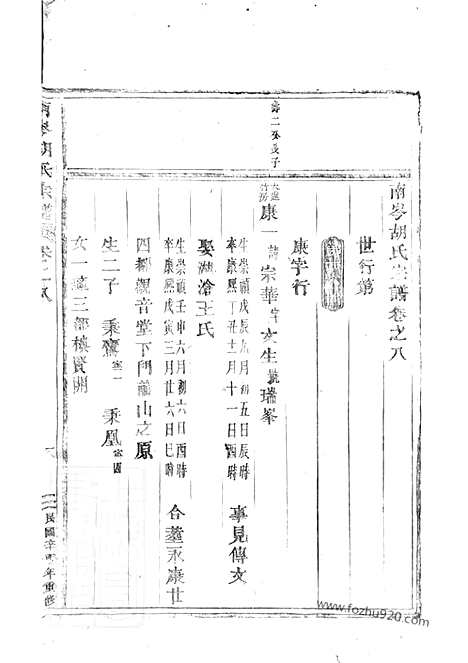 南岑胡氏宗譜卷之八
世行第
康字行
壽二公長子
康一 諱宗華字文生號瑞峯
生崇禎戊辰九月初五日辰時
卒康熙丁丑十二月十一日酉時
事見傳文
娶湖滄王氏
生崇禎壬申六月初六日酉時
卒康熙戊寅三月廿六日巳時
合葬永康廿
四都觀音堂下門前山之原
生二子 秉鸞 秉凰
女一適三都樓賢開
南岑胡氏宗譜卷之八
民國辛 年重修
www.fozhu920.com